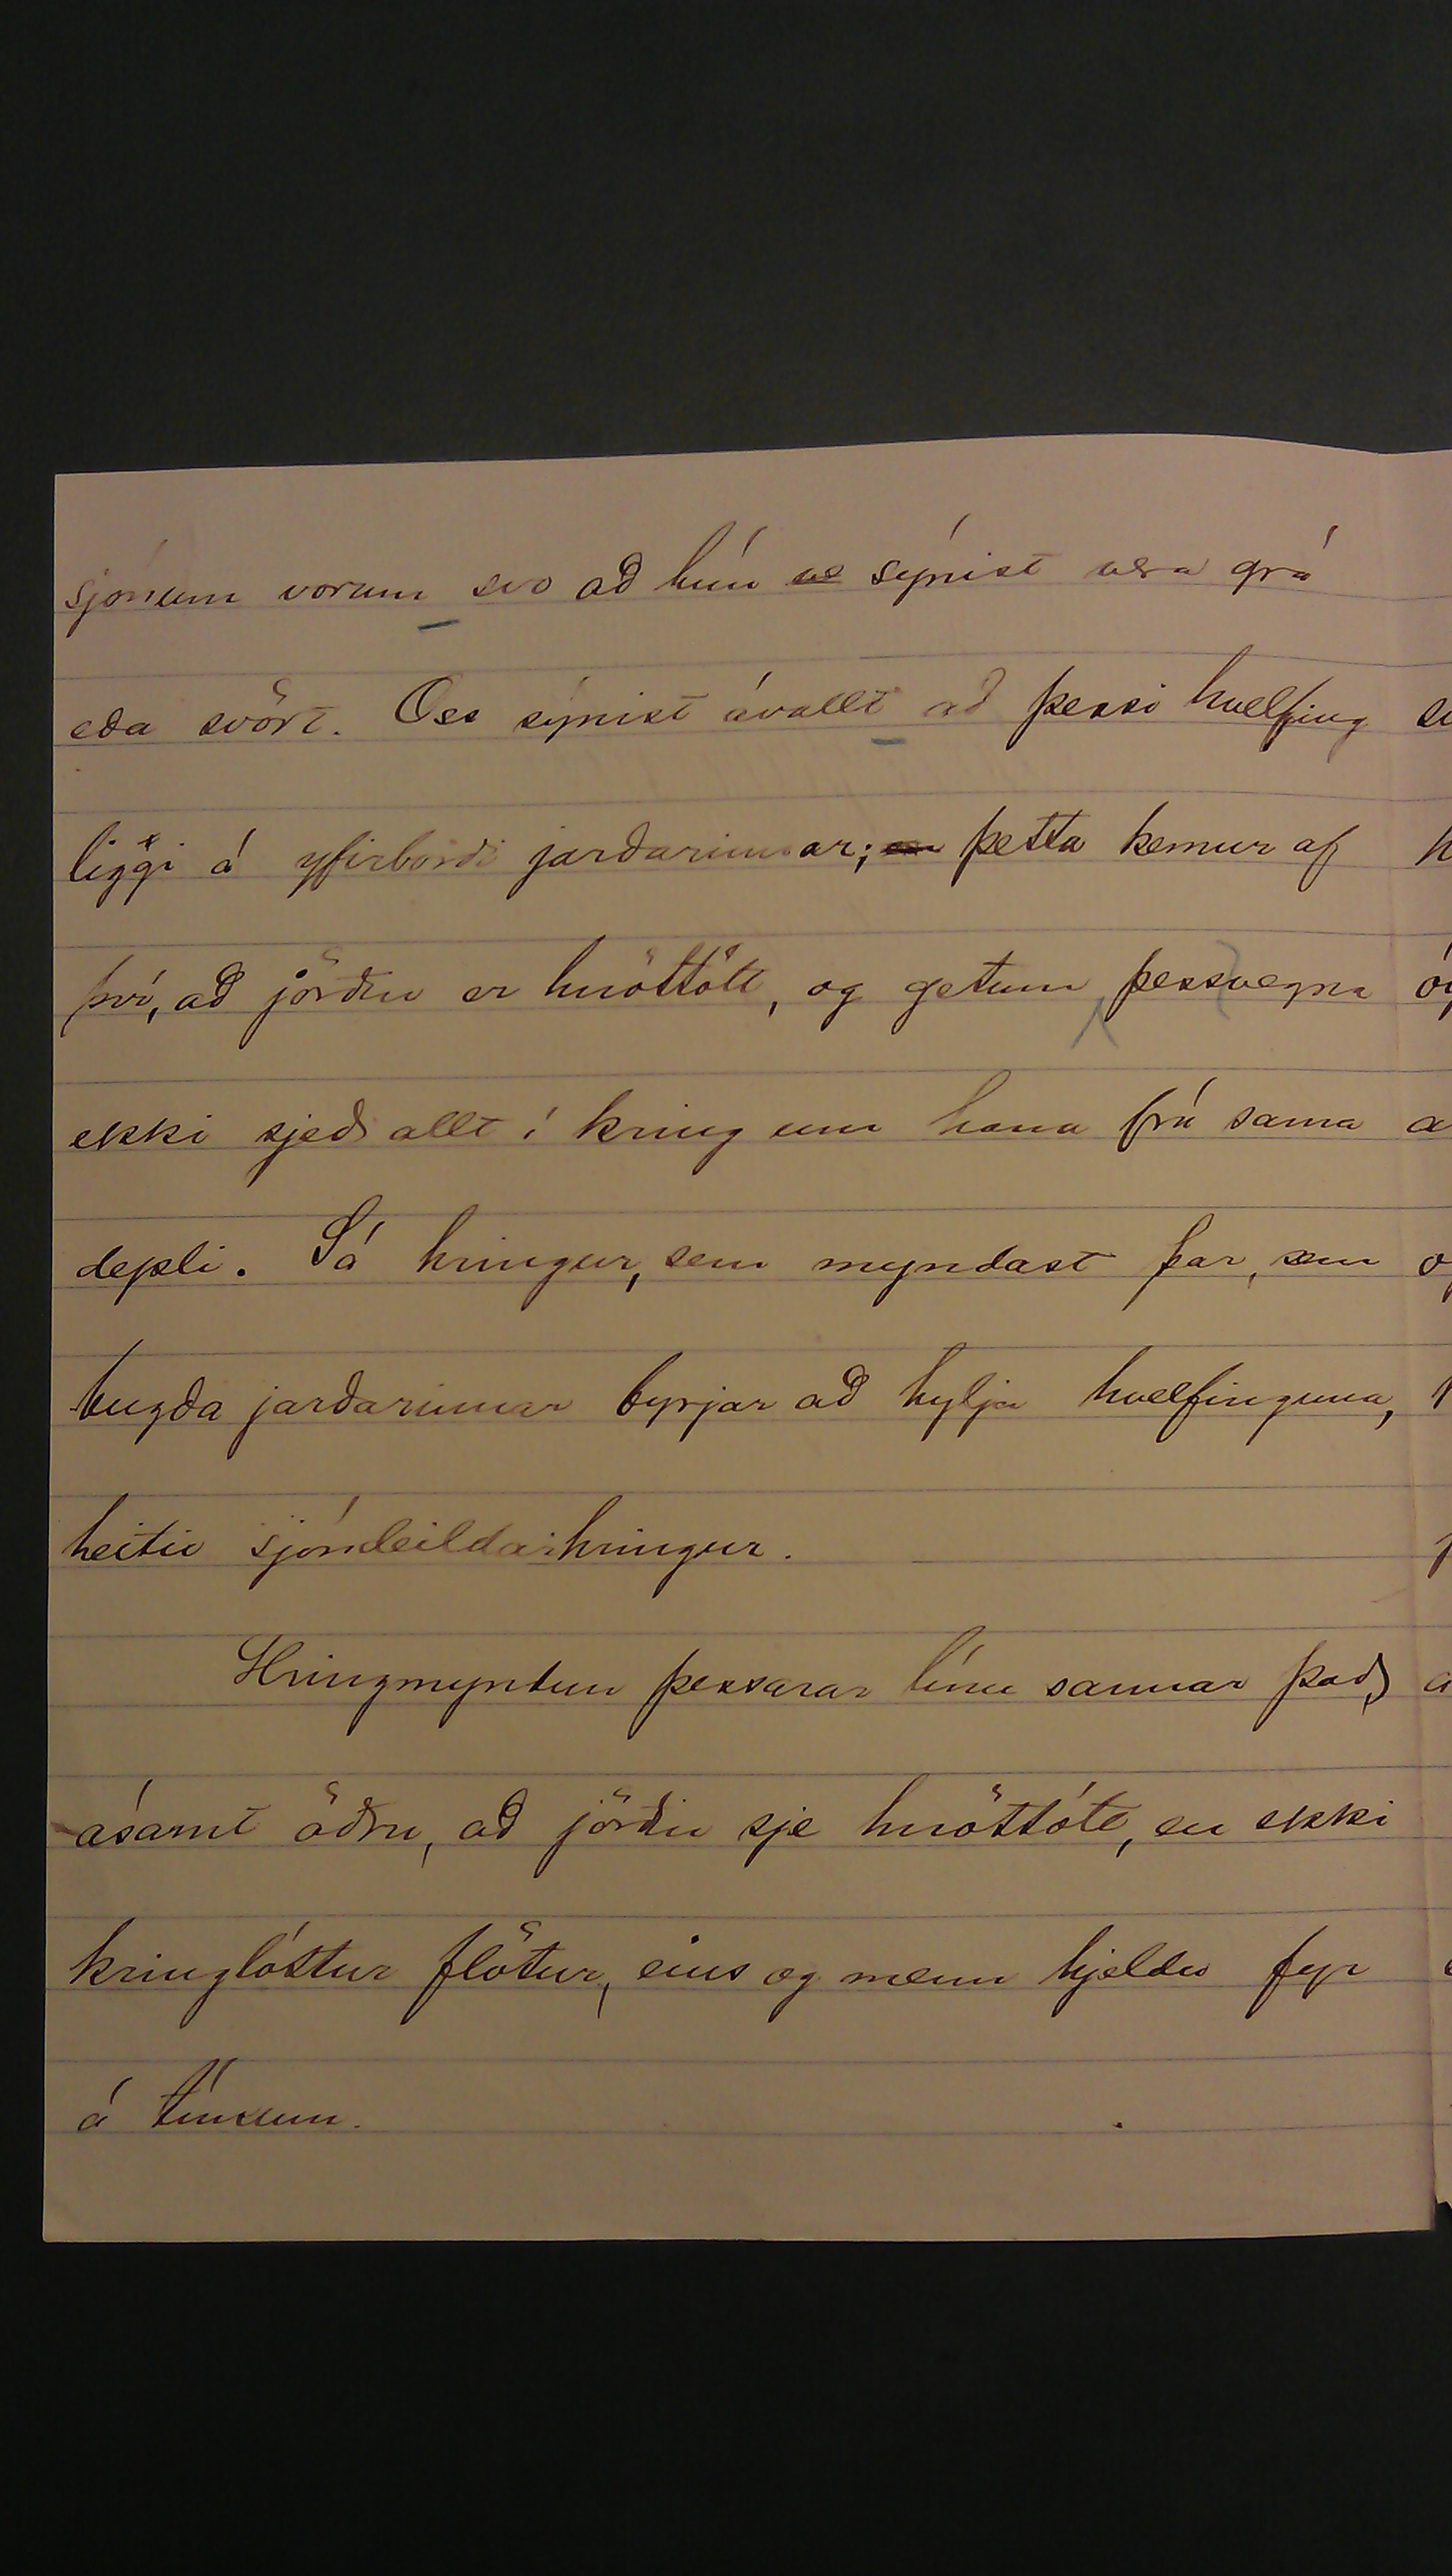 sjónum vorum svo að hún ve sýnist vera grá
eða svört. Oss sýnist ávallt að þessi hvelfing
liggi á yfirborði jarðarinnar; en þetta kemur af
því, að jörðin er hnöttótt, og getum þessvegna
ekki sjeð allt í kring um hana frá sama
depli. Sá hringur, sem myndast þar, sem
bugða jarðarinnar byrjar að hylja hvelfinguna,
heitir sjóndeildarhringur.
Hringmyndun þessarar línu sannar það,
ásamt öðru, að jörðin sje hnöttótt, en ekki
kringlóttur flötur, eins og menn hjeldu fyr
á tímum.